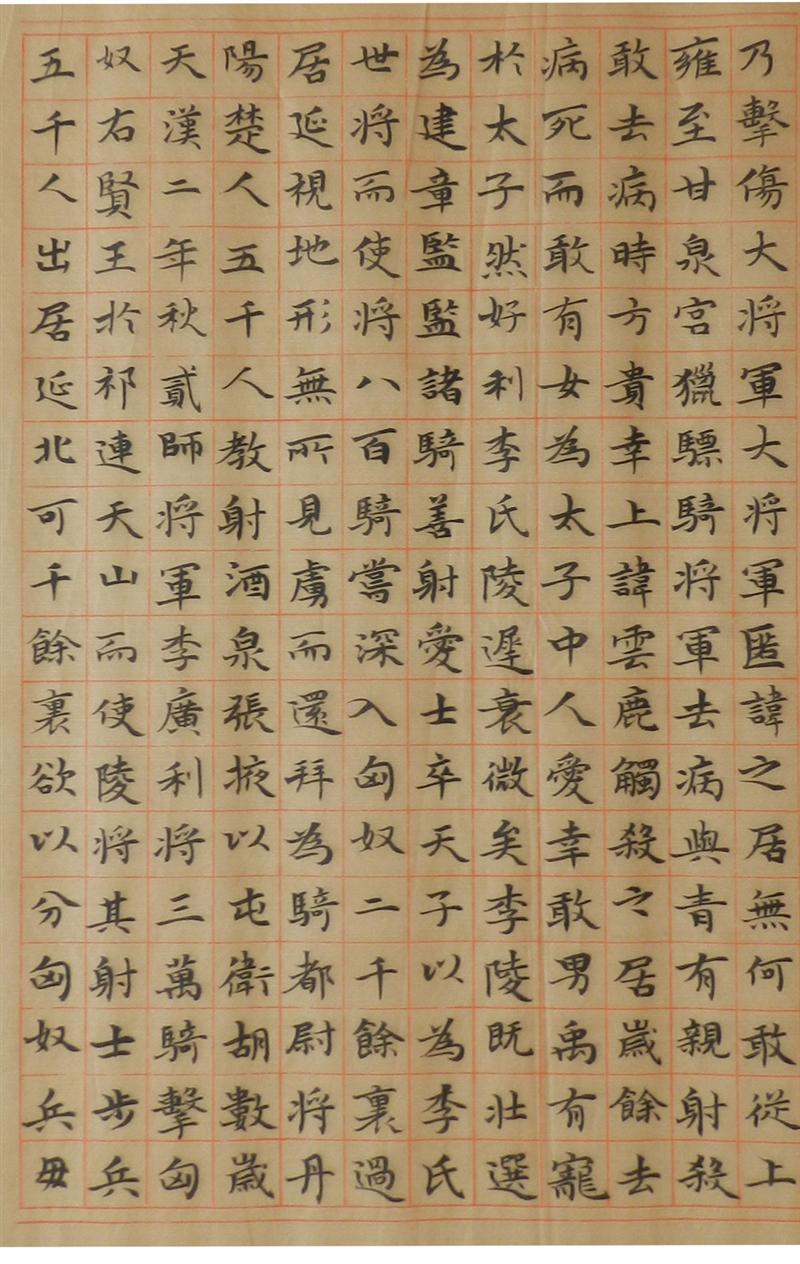 乃擊傷大將軍大將軍匿諱之居無何敢從上
雍至甘泉宮獵驃騎將軍去病與青有親射殺
敢去病時方貴幸上諱雲鹿觸殺之居歲餘去
病死而敢有女為太子中人愛幸敢男禹有寵
於太子然好利李氏陵遲衰微矣李陵既壯選
為建章監監諸騎善射愛士卒天子以為李氏
世將而使將八百騎嘗深入匈奴二千餘裏過
居延視地形無所見虜而還拜為騎都尉將丹
陽楚人五千人教射酒泉張掖以屯衛胡數歲
天漢二年秋貳師將軍李廣利將三萬騎擊匈
奴右賢王於祁連天山而使陵將其射士步兵
五千人出居延北可千餘裏欲以分匈奴兵毋